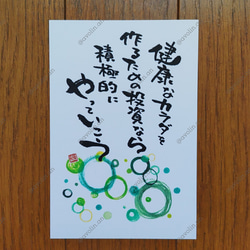 健康なカラダを
作るための投資なら
積極的に
やっていこう